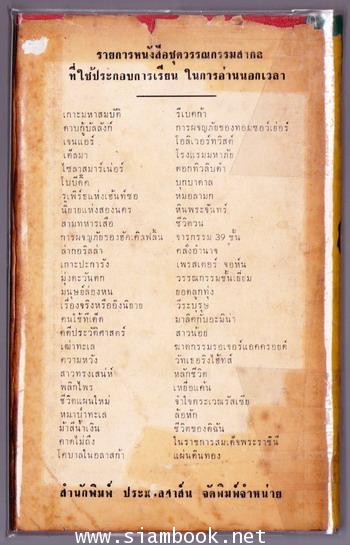 รายการหนังสือชุดวรรณกรรมสากล
ที่ใช้ประกอบการเรียน ในการอ่านนอกเวลา
เกาะมหาสมบัติ
กาบกู้บัลลังก์
เจนแอร์
เค็ลมา
ไซลาสมาร์เน่อร์
โมบี้ดิ๊ค
รูเพิร์ธแห่งเฮ็นท์ซอ
นิยายแห่งสองนคร
สามทหารเสือ
การผจญภัยของฮัคเคิลฟลิ้น
ล่ากอริลล่า
เกาะปะการัง
มุ่งตะวันตก
มนุษย์ล่องหน
เรื่องจริงหรืออิงนิยาย
คนใช้ทีเด็ด
คดีประวัติศาสตร์
เฒ่าทะเล
ความหวัง
สาวทรงเสน่ห์
พลิกไพร
ชีวิตแผนใหม่
หมาป่าทะเล
ม้าสีน้ำเงิน
คาดไม่ถึง
โคบาลในอลาสก้า
รีเบคก้า
การผจญภัยของทอมซอว์เย่อร์
โอลิเวอร์ทวิสต์
โรงแรมมหาภัย
ดอกทิวลิปดำ
บุกบาดาล
หมอลามก
หินพระจันทร์
ชีวิตวน
จารกรรม 39 ขั้น
คลั่งอำนาจ
เพรสเตอร์ จอห์น
วรรณกรรมชั้นเยี่ยม
ยอดลูกทุ่ง
วีระบุรุษ
มาลีคกับอะมีน่า
สาวน้อย
ฆาตกรรมรอเจอร์แอคครอยด์
วัทเธอริงไฮ้ทส์
หลักชีวิต
เหยื่อแค้น
จ้าวใจกระเวณรัสเซีย
ล้อหัก
ชีวิตของดิฉัน
ในราชการสมเด็จพระราชินี
แผ่นดินทอง
สำนักพิมพ์ ประมวลสาส์น จัดพิมพ์จำหน่าย
www.siambook.net